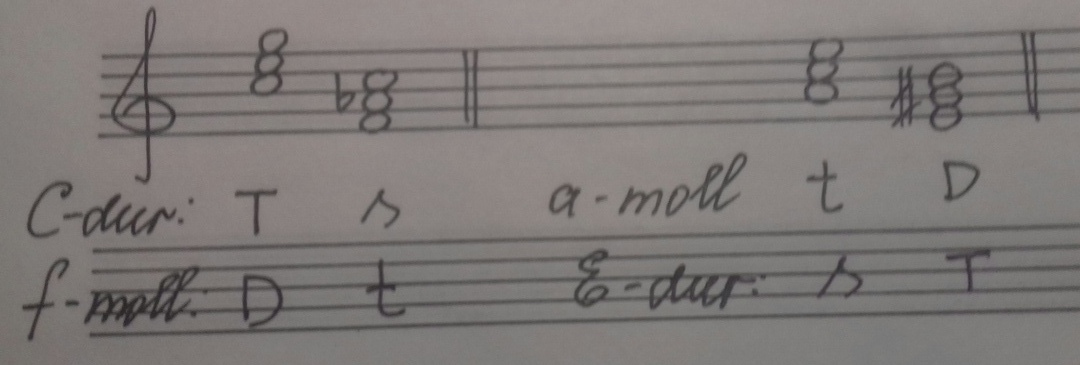 C-dur: T s a-moll t D
f-moll: D t E-dur: s T